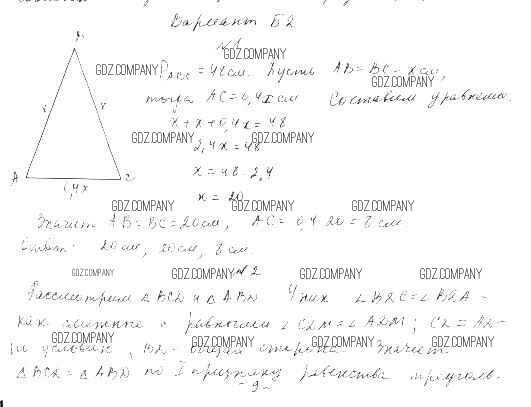 Вариант Б2
№1
B
P ABC = 48 см. Пусть AB = BC = x см,
тогда AC = 0,4x см Составим уравнение.
x + x + 0,4x = 48
2,4x = 48
x = 48 : 2,4
x = 20
x
x
A
C
0,4x
Значит AB = BC = 20 см, AC = 0,4 · 20 = 8 см
Ответ: 20 см, 20 см, 8 см.
№2
Рассмотрим △ BCD и △ ABD У них
как смежные с равными ∠ CDM = ∠ ADM; CD = AD -
по условию, BD - общая сторона. Значит
△ BCD = △ ABD по I признаку равенства треуголь.
- 9 -
GDZ.COMPANY
GDZ.COMPANY
GDZ.COMPANY
GDZ.COMPANY
GDZ.COMPANY
GDZ.COMPANY
GDZ.COMPANY
GDZ.COMPANY
GDZ.COMPANY
GDZ.COMPANY
GDZ.COMPANY
GDZ.COMPANY
GDZ.COMPANY
GDZ.COMPANY
GDZ.COMPANY
GDZ.COMPANY
GDZ.COMPANY